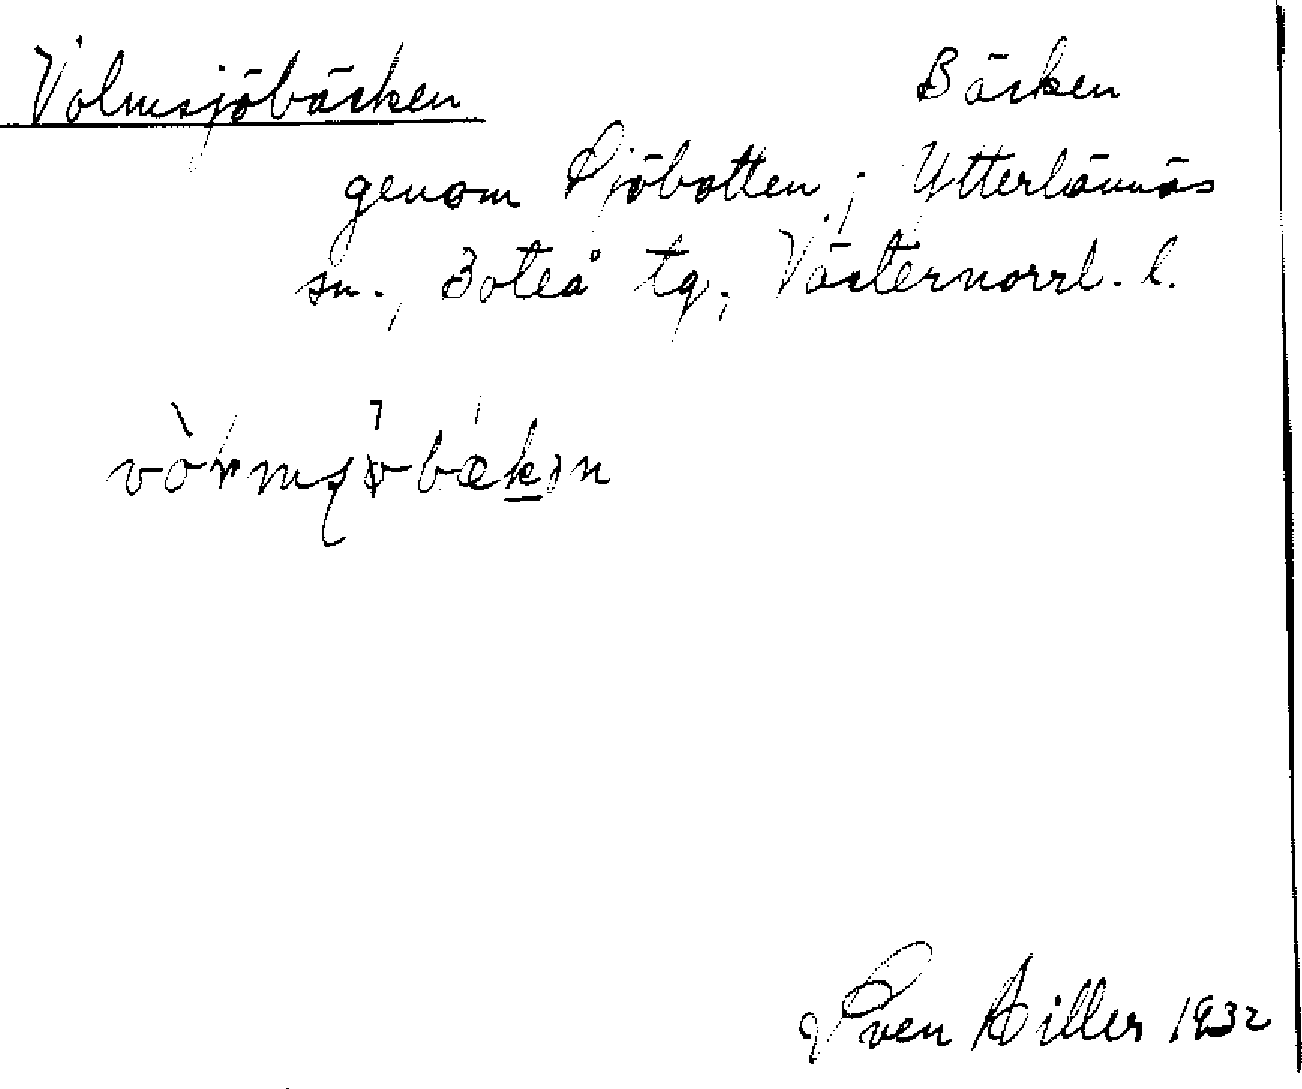 Volmsjöbäcken Bäcken
genom Sjöbotten, Ytterlännäs
sn., Boteå tg, Västernorrl. l.
Sven Hiller 1932